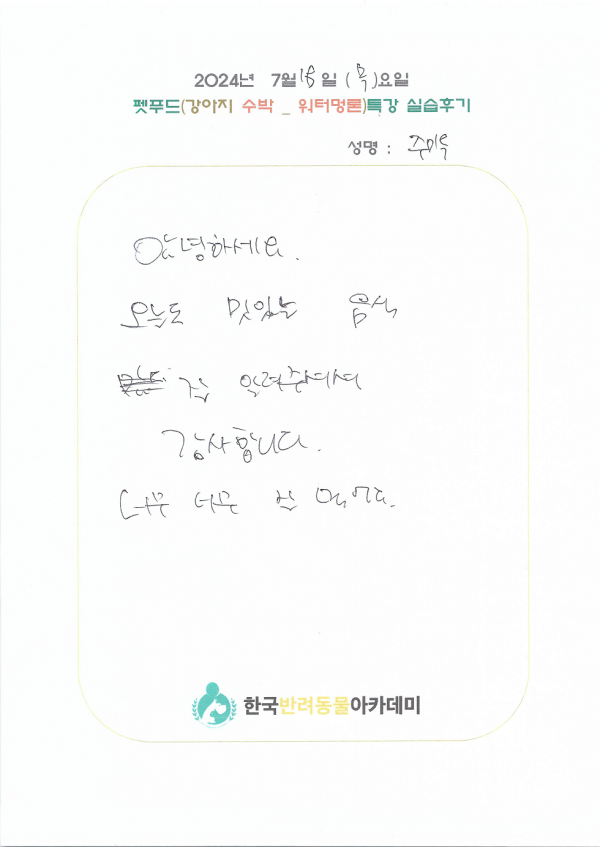 2024년 7월 18일 (목)요일
펫푸드(강아지 수박 _ 워터멍론)특강 실습후기
성명 : 주미숙
안녕하세요.
오늘도 맛있는 음식
알려주셔서
감사합니다.
너무 너무
한국반려동물아카데미